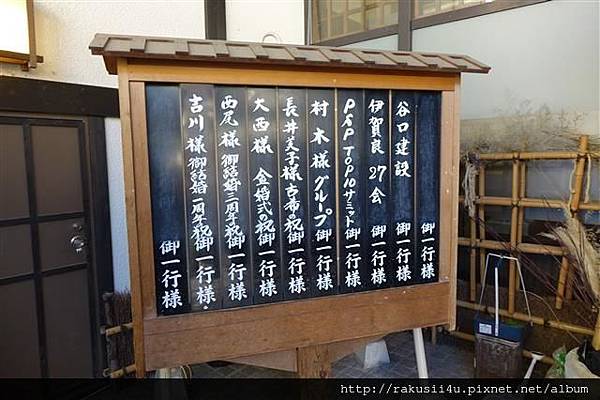 御一行様
谷口建設 御一行様
伊賀良27会 御一行様
PSP TOP10サミット 御一行様
村木様グループ 御一行様
長井芙子様古希の祝 御一行様
大西様 金婚式の祝 御一行様
西尾様 御結婚三周年祝 御一行様
吉川様 御結婚一周年祝 御一行様
御一行様
http://rakusii4u.pixnet.net/album